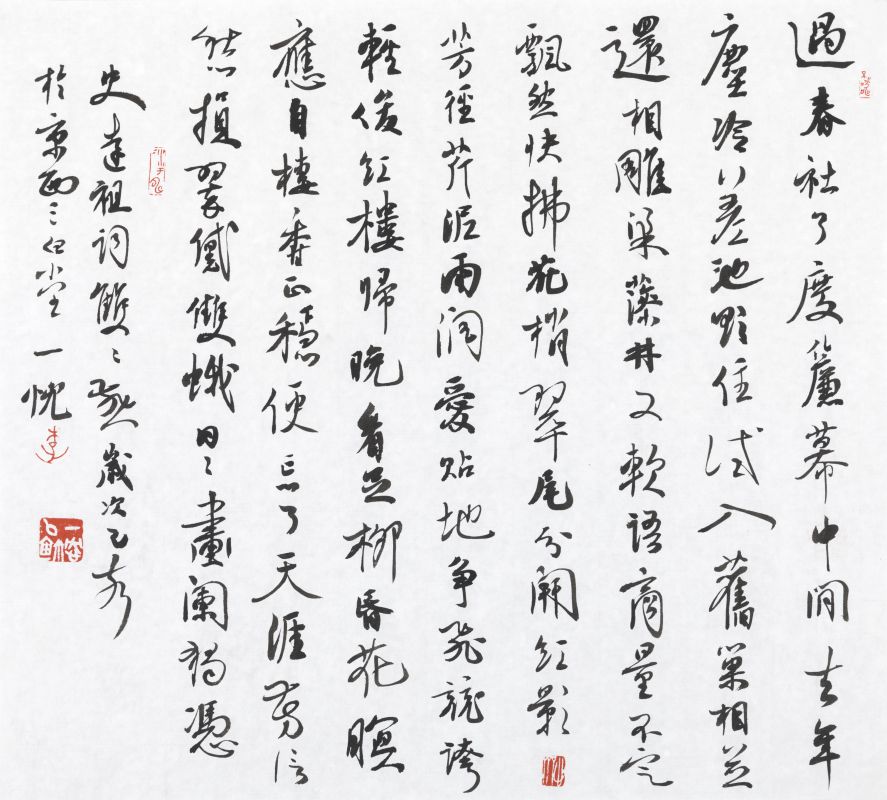 過春社了度簾幕中間去年
塵冷差池欲住試入舊巢相並
還相雕梁藻井又軟語商量不定
飄然快拂花梢翠尾分開紅影
芳徑芹泥雨潤愛貼地爭飛競誇
輕俊紅樓歸晚看足柳昏花暝
應自棲香正穩便忘了天涯芳信
愁損翠黛雙蛾日〻畫闌獨憑
史達祖詞雙〻燕歲次乙
於京西堂一忱
李